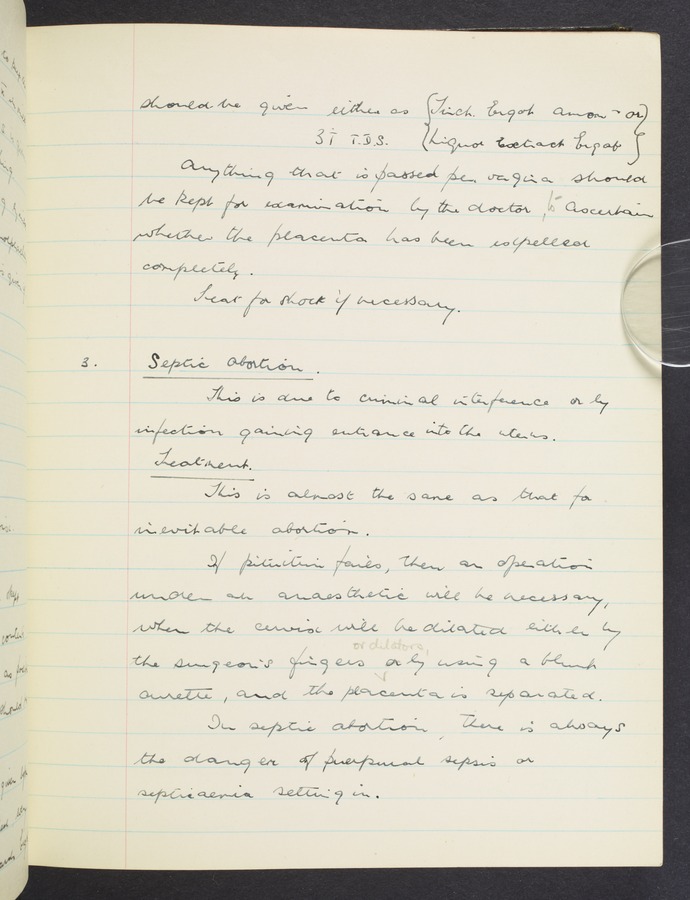 should be given either as {Tinct. Ergot ammon - or}
ʒī T.D.S. {Liquor Extract Ergot}
Anything that is passed per vagina should
be kept for examination by the doctor, to ascertain
whether the placenta has been expelled
completely.
Treat for shock if necessary.
3. Septic abortion.
This is due to criminal interference or by
infection gaining entrance into the uterus.
Treatment.
This is almost the same as that for
inevitable abortion.
If pituitrin fails, then an operation
under an anaesthetic will be necessary,
when the cervix will be dilated either by
or dilators,
the surgeon's fingers or by using a blunt
curette, and the placenta is separated.
In septic abortion, there is always
the danger of puerperal sepsis or
septicaemia setting in.